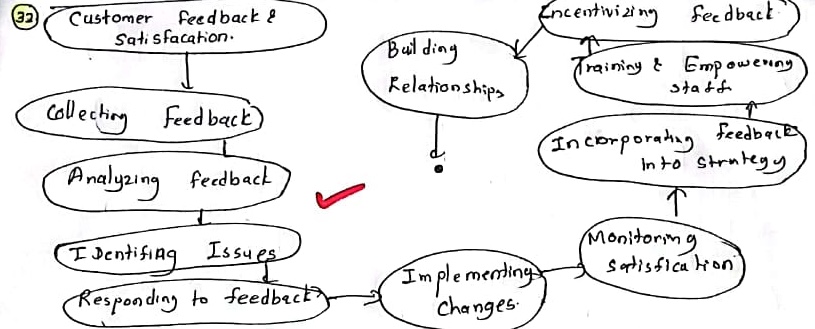 32
Customer feedback &
Satisfacation.
Collecting feedback
Analyzing feedback
IDentifing Issues
Responding to feedback
Implementing
Changes.
Monitoring
Satisfication
Incorporating feedback
into strategy
Training & Empowering
staff
Encentivizing feedback
Building
Relationships